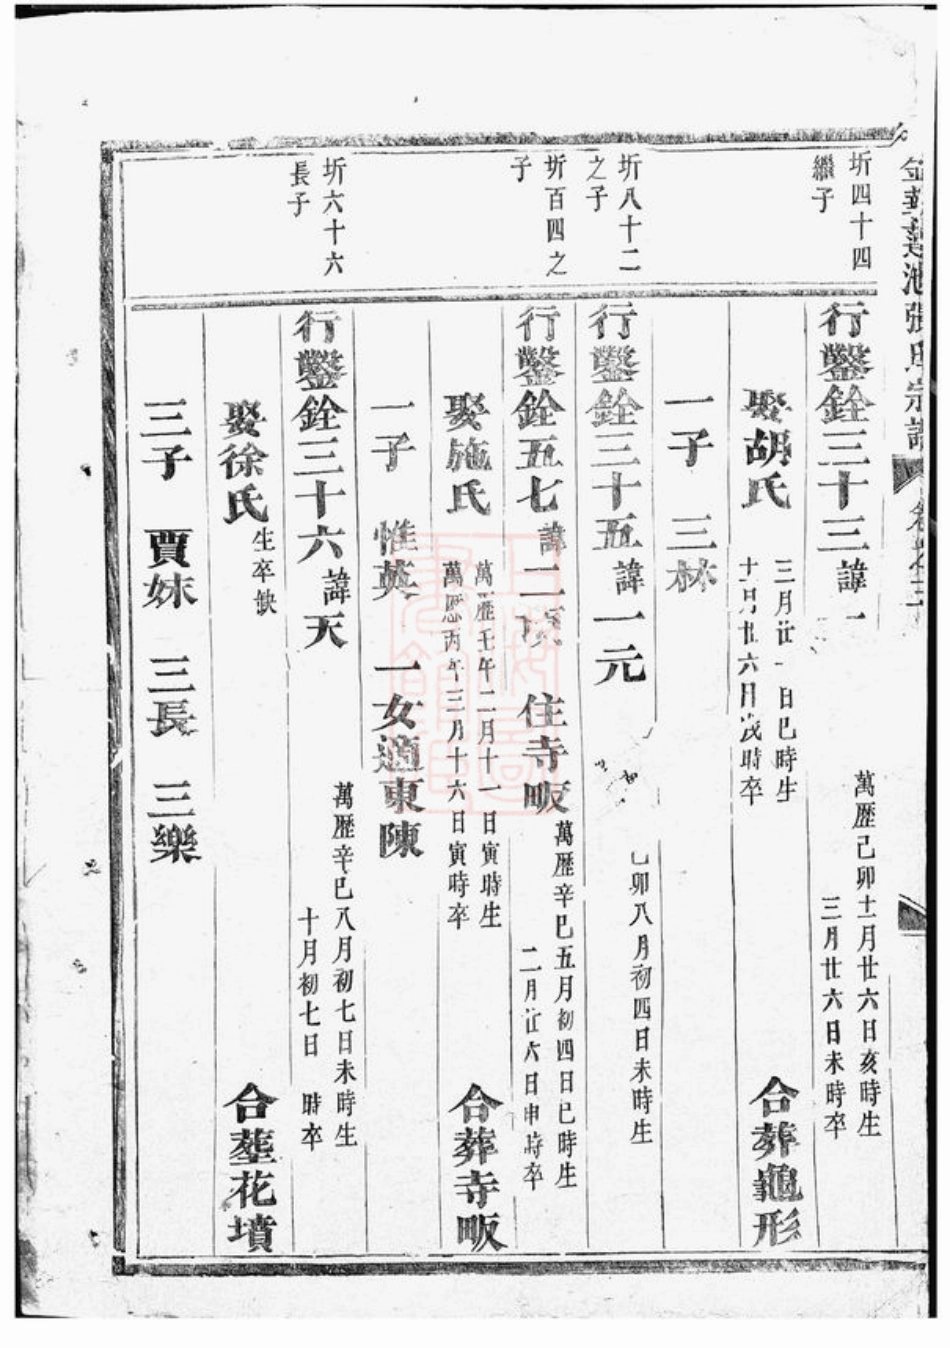 張氏宗譜
圻四十四
繼子
行鑿銓三十三諱一
萬歷己卯十一月廿六日亥時生
三月廿六日未時卒
娶胡氏
三月廿一日巳時生
十一月廿六日戌時卒
合葬龜形
一子 三林
圻八十二
之子
行鑿銓三十五諱一元
乙卯八月初四日未時生
圻百四之
子
行鑿銓五七諱二 住寺畈
萬歷辛巳五月初四日巳時生
二月廿六日申時卒
娶施氏
萬歷壬午二月十一日寅時生
萬歷丙午三月十六日寅時卒
合葬寺畈
一子 惟英 一女適東陳
圻六十六
長子
行鑿銓三十六諱天
萬歷辛巳八月初七日未時生
十月初七日 時卒
娶徐氏 生卒缺
合塟花墳
三子 賈妹 三長 三樂